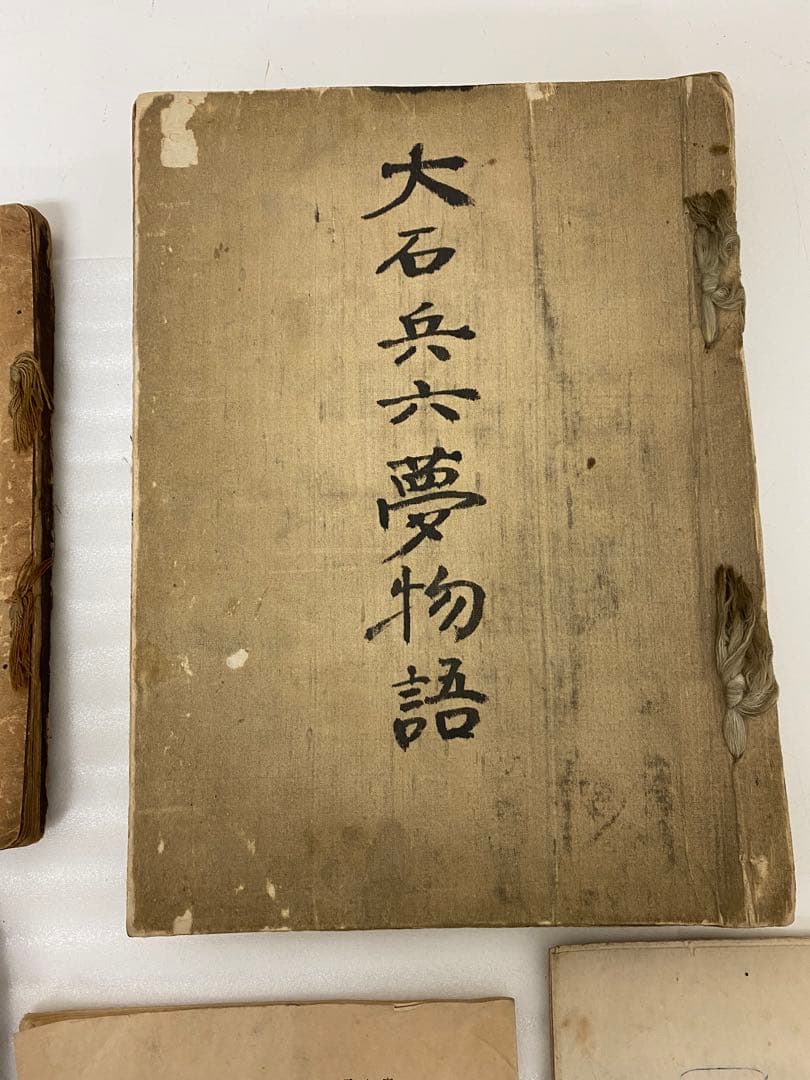 大石兵六夢物語